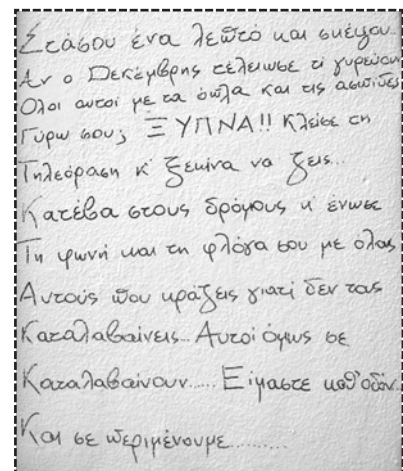 Στάσου ένα λεπτό και σκέψου..
Αν ο Δεκέμβρης τέλειωσε τί γυρεύουν
Όλοι αυτοί με τα όπλα και τις ασπίδες
Γύρω σου; ΞΥΠΝΑ!! Κλείσε τη
Τηλεόραση κ' ξεκίνα να ζεις...
Κατέβα στους δρόμους κ' ένωσε
Τη φωνή και τη φλόγα σου με όλους
Αυτούς που κράζεις γιατί δεν τους
Καταλαβαίνεις... Αυτοί όμως σε
Καταλαβαίνουν...... Είμαστε καθ'οδόν..
Και σε περιμένουμε..........